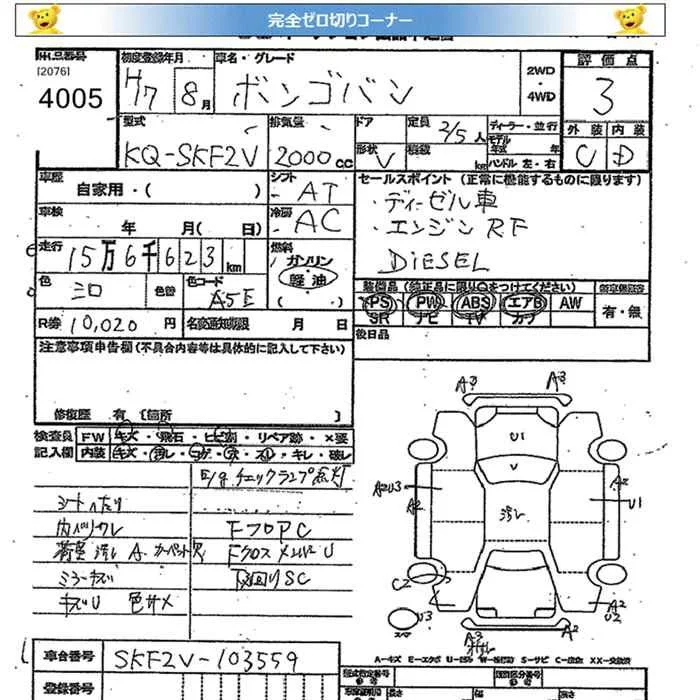 完全ゼロ切りコーナー
出品番号
[2076]
4005
初度登録年月
H7 8月
車名・グレード
ボンゴバン
2WD
・
4WD
評価点
3
外装 内装
C D
型式
KQ-SKF2V
排気量
2000cc
ドア
形状
V
定員
2/5人
積載
kg
ディーラー・並行
モデル
年式 年
ハンドル 左・右
車歴
自家用・( )
シフト
AT
車検
年 月( 日)
冷房
AC
走行
15万6千623km
燃料
ガソリン
軽油
( )
色
シロ
色替
色コード
A5E
R券 10,020円
名変通知期限 月 日
セールスポイント (正常に機能するものに限ります)
・ディーゼル車
・エンジン RF
DIESEL
装備品 (純正品に限り○をつけてください)
PS PW ABS エアB AW
SR ナビ TV カワ
有・無
後日品
注意事項申告欄(不具合内容等は具体的に記入して下さい)
修復歴 有 〔箇所 〕
検査員
記入欄
FW キズ・飛石・ヒビ割・リペア跡・×要
内装 キズ・汚レ・コゲ・穴・スレ・キレ・破レ
E/g チェックランプ点灯
シートヘタリ
内ハリワレ
荷室 汚レ A カーペット欠
ミラーキズ
キズU 色サメ
FフロアC
Fクロスメンバー U
下回りSC
A3 A3
U1
V
汚レ
A2U3
A2
A2
U1
C2
U3
スペア
A3
A2
A2
U2
A-キズ E-エクボ U-凹ミ W-波(板) S-サビ C-腐蝕 XX-交換済
車台番号
SKF2V-103559
登録番号
型式指定番号
類別区分番号
長さ
幅
高さ